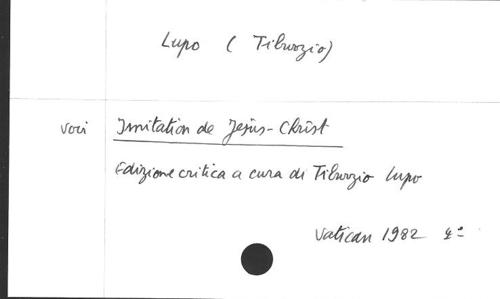 Lupo ( Tiburzio)
voci Imitation de Jésus-Christ
Edizione critica a cura di Tiburzio Lupo
Vatican 1982 4°